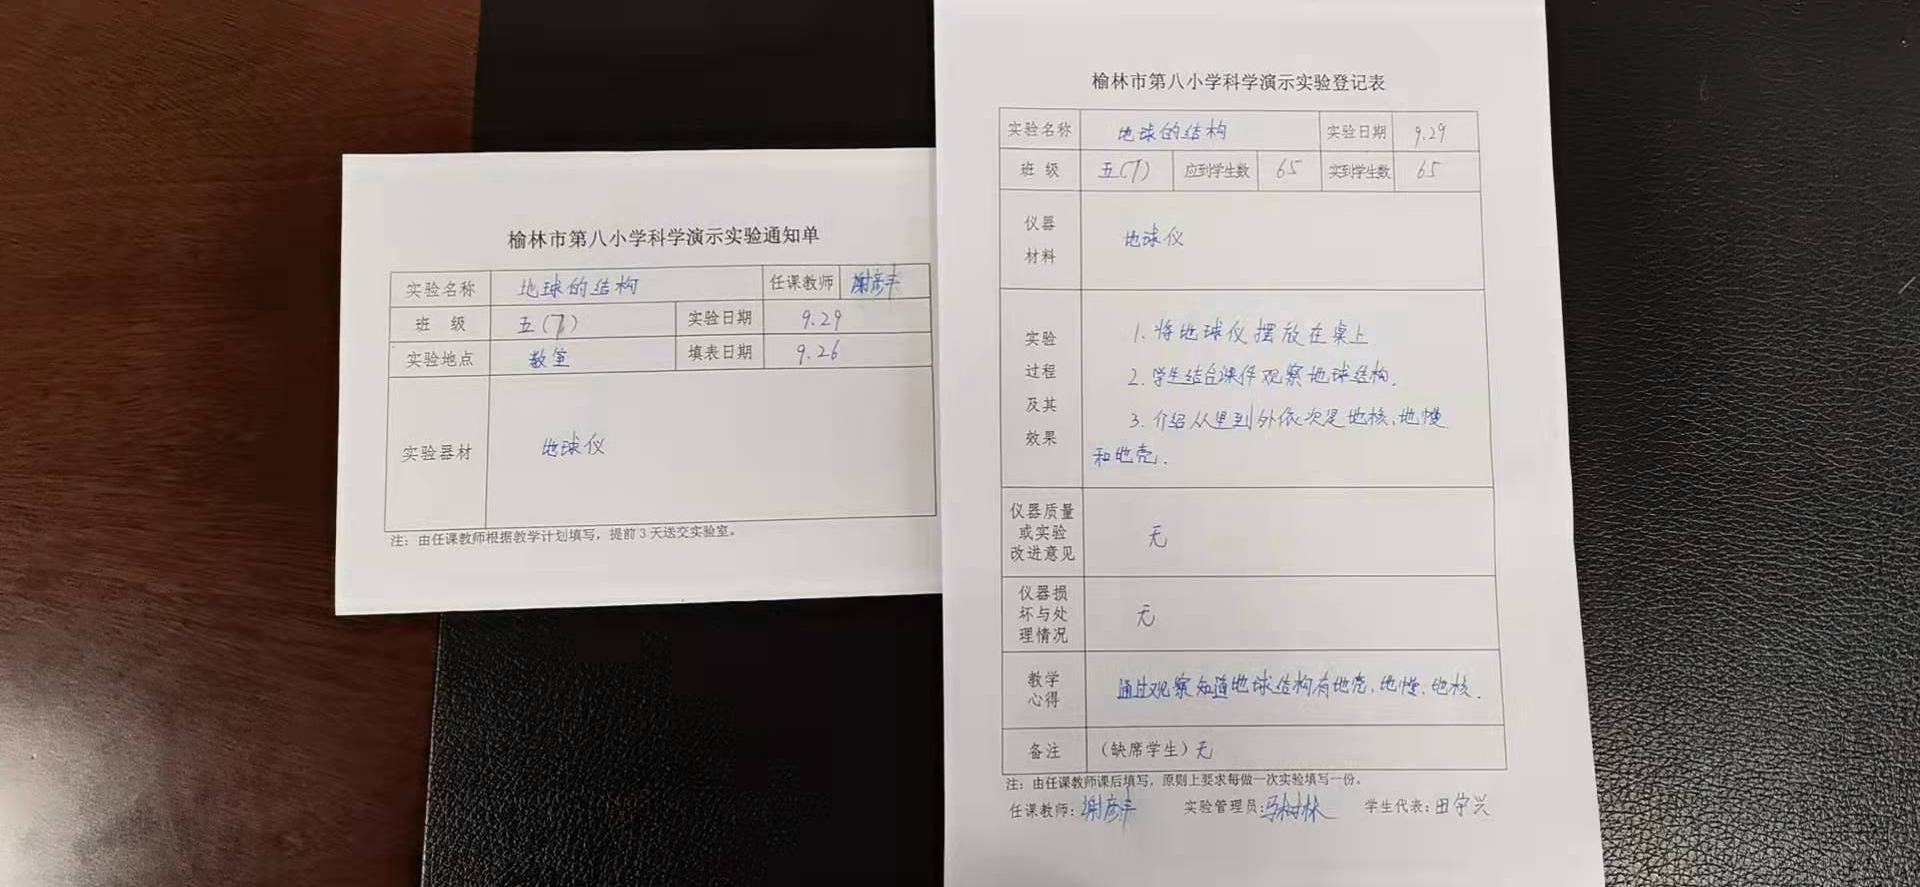 榆林市第八小学科学演示实验通知单
实验名称 地球的结构 任课教师 谢彦丰
班 级 五(7) 实验日期 9.29
实验地点 教室 填表日期 9.26
实验器材 地球仪
注：由任课教师根据教学计划填写，提前3天送交实验室。
榆林市第八小学科学演示实验登记表
实验名称 地球的结构 实验日期 9.29
班 级 五(7) 应到学生数 65 实到学生数 65
仪器
材料
地球仪
实验
过程
及其
效果
1.将地球仪摆放在桌上
2.学生结合课件观察地球结构.
3.介绍从里到外依次是地核、地幔
和地壳.
仪器质量
或实验
改进意见
无
仪器损
坏与处
理情况
无
教学
心得
通过观察知道地球结构有地壳、地幔、地核.
备注 （缺席学生）无
注：由任课教师课后填写，原则上要求每做一次实验填写一份。
任课教师：谢彦丰 实验管理员：马树林 学生代表：田宇兴